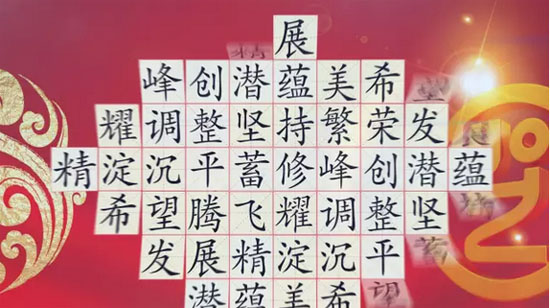 展
峰创潜蕴美希
耀调整坚持繁荣发
精淀沉平蓄修峰创潜蕴
希望腾飞耀调整坚
发展精淀沉平
潜蕴美希